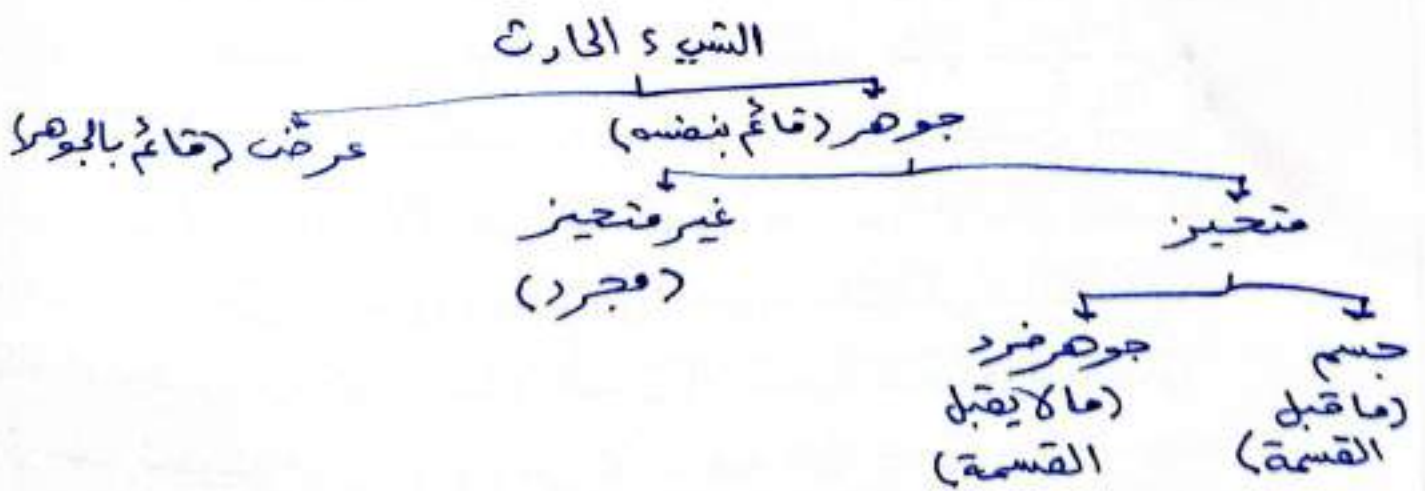 الشيء الحادث
جوهر (قائم بنفسه)
عرض (قائم بالجوهر)
متحيز
غير متحيز
(مجرد)
جسم
(ما قبل
القسمة)
جوهر فرد
(ما لا يقبل
القسمة)